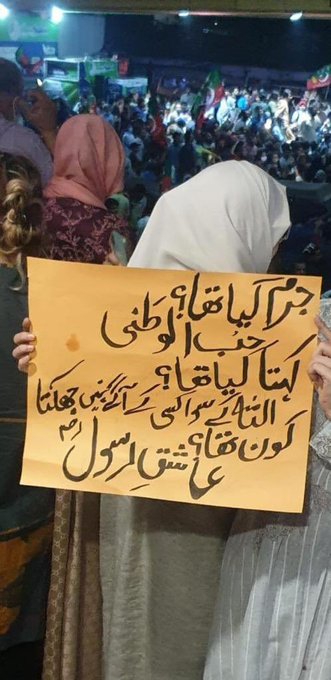 جرم کیا تھا؟
حُب الوطنی
کہتا کیا تھا؟
اللہ کے سوا کسی کے آگے نہیں جھکتا
کون تھا؟
عاشقِ رسولؐ